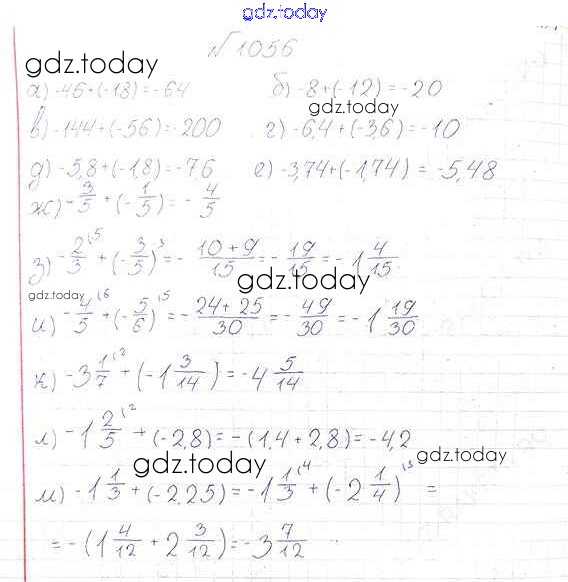 gdz.today
№1056
gdz.today
а) -46+(-18)=-64 б) -8+(-12)=-20
gdz.today
в) -144+(-56)=-200 г) -6,4+(-3,6)=-10
д) -5,8+(-1,8)=-7,6 е) -3,74+(-1,74) = -5,48
ж) -3/5 + (-1/5) = -4/5
з) -2/3 ⁽⁵ + (-3/5) ⁽³ = - (10+9)/15 = -19/15 = -1 4/15
gdz.today
gdz.today
и) -4/5 ⁽⁶ + (-5/6) ⁽⁵ = - (24+25)/30 = -49/30 = -1 19/30
к) -3 1/7 ⁽² + (-1 3/14) = -4 5/14
л) -1 2/5 ⁽² + (-2,8) = -(1,4+2,8) = -4,2
gdz.today
gdz.today
м) -1 1/3 + (-2,25) = -1 1/3 ⁽⁴ + (-2 1/4) ⁽³ =
= -(1 4/12 + 2 3/12) = -3 7/12